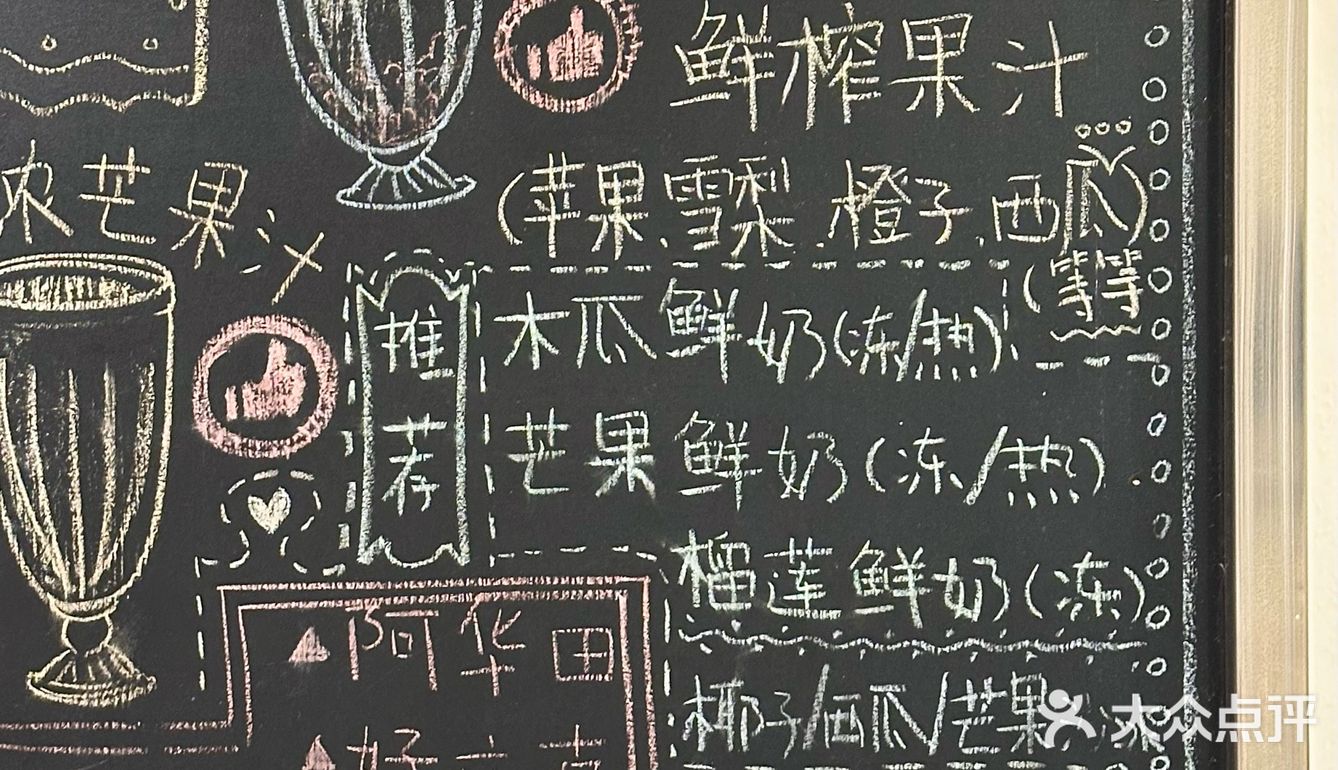 鲜榨果汁
(苹果、雪梨、橙子、西瓜)
(等等
浓芒果汁
推荐
木瓜鲜奶(冻/热)
芒果鲜奶(冻/热)
榴莲鲜奶(冻)
▲阿华田
椰子/西瓜/芒果
大众点评